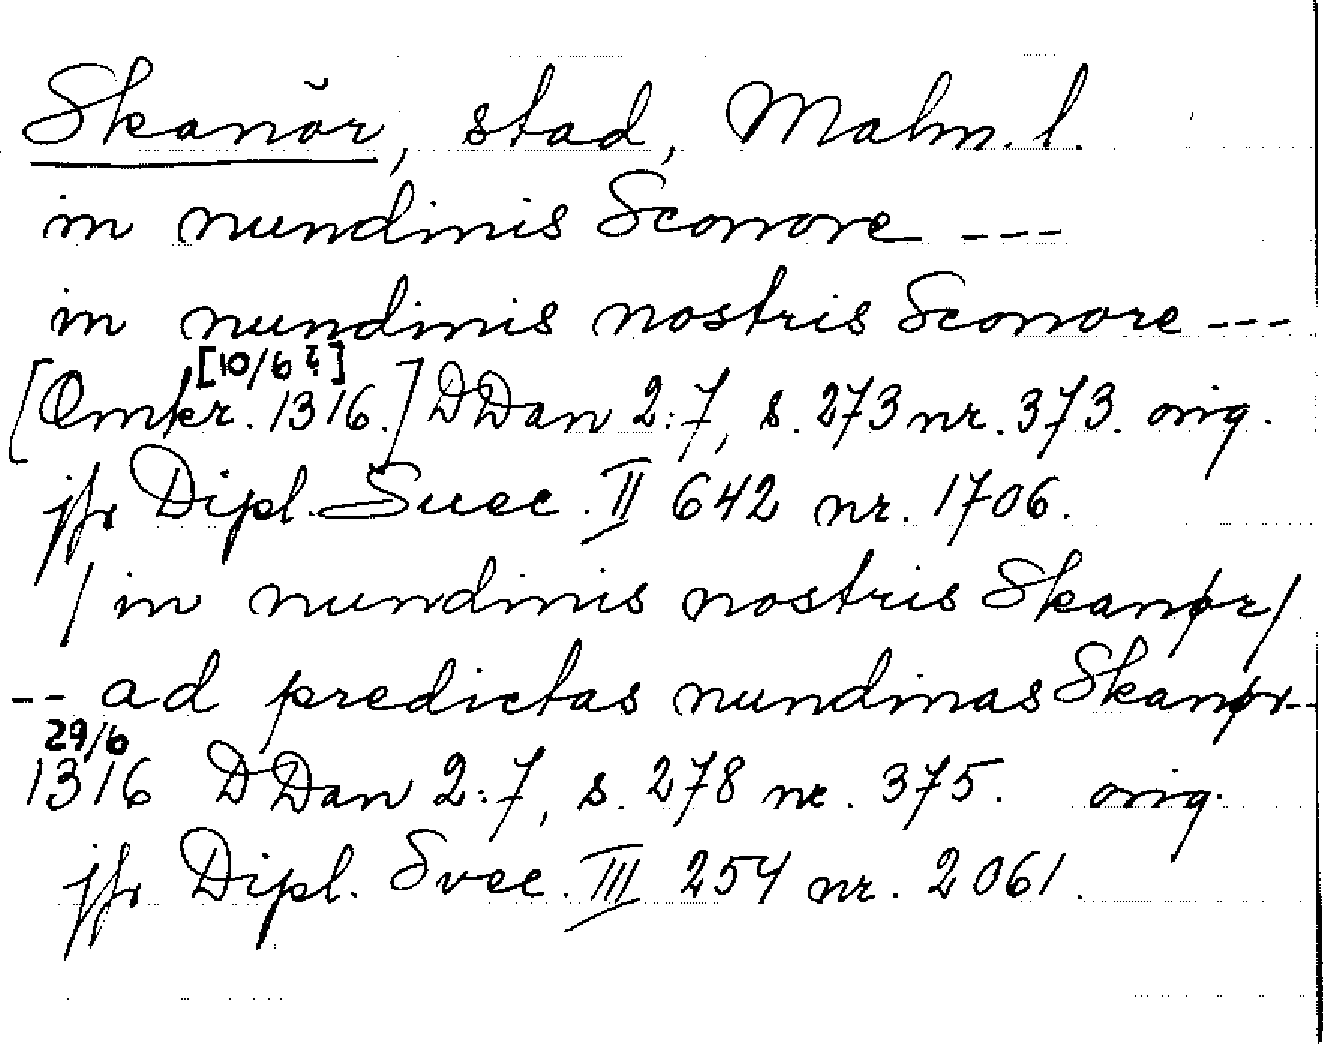 Skanör, stad, Malm. l.
in nundinis Sconore ---
in nundinis nostris Sconore ---
[10/6 ?]
[Omkr. 1316.] DDan 2:7, s. 273 nr. 373. orig.
jfr Dipl. Suec. II 642 nr. 1706.
/in nundinis nostris Skanør/
-- ad predictas nundinas Skanør--
29/6
1316 DDan 2:7, s. 278 nr. 375. orig.
jfr Dipl. Svec. III 254 nr. 2061.